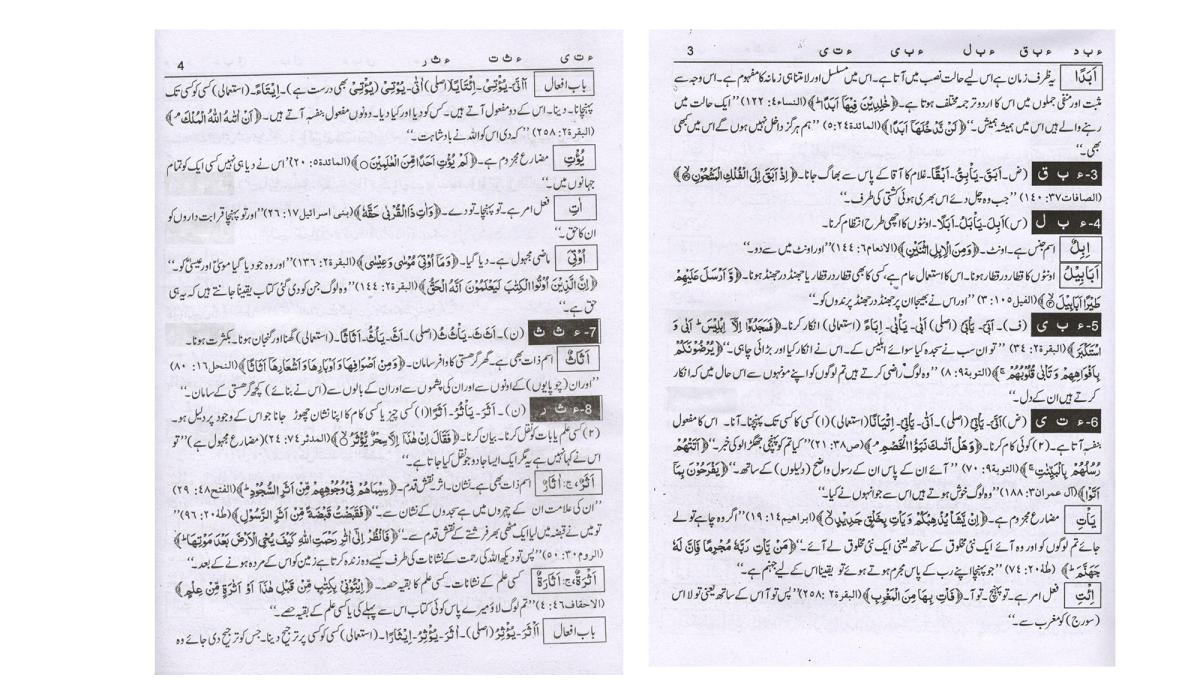 3 ء ب د ء ب ق ء ب ل ء ب ی ء ت ی
اَبَدًا یہ ظرف زمان ہے اس لیے حالت نصب میں آتا ہے۔ اس میں مسلسل اور لامتناہی زمانہ کا مفہوم ہے۔ اس وجہ سے
مثبت اور منفی جملوں میں اس کا اردو ترجمہ مختلف ہوتا ہے۔ ﴿خٰلِدِیْنَ فِیْهَاۤ اَبَدًا ؕ﴾ (النساء۴: ۱۲۲) ’’ایک حالت میں
رہنے والے ہیں اس میں ہمیشہ ہمیش۔‘‘ ﴿لَنْ نَّدْخُلَهَاۤ اَبَدًا﴾ (المائدة۵:۲۴) ’’ہم ہرگز داخل نہیں ہوں گے اس میں کبھی
بھی۔‘‘
3-ء ب ق (ض)۔ اَبَقَ۔ یَأْبِقُ۔ اَبْقًا۔ غلام کا آقا کے پاس سے بھاگ جانا۔ ﴿اِذْ اَبَقَ اِلَی الْفُلْكِ الْمَشْحُوْنِ﴾
(الصافات۳۷: ۱۴۰) ’’جب وہ چل دیے اس بھری ہوئی کشتی کی طرف۔‘‘
4-ء ب ل (س) اَبِلَ۔ یَأْبَلُ۔ اَبَلًا۔ اونٹوں کا اچھی طرح انتظام کرنا۔
اِبِلٌ اسم جنس ہے۔ اونٹ۔ ﴿وَمِنَ الْاِبِلِ اثْنَیْنِ﴾ (الانعام۶: ۱۴۴) ’’اور اونٹ میں سے دو۔‘‘
اَبَابِیْلُ اونٹوں کا قطار در قطار ہونا۔ اس کا استعمال عام ہے، کسی کا بھی قطار در قطار یا جھنڈ در جھنڈ ہونا۔ ﴿وَّ اَرْسَلَ عَلَیْهِمْ
طَیْرًا اَبَابِیْلَ﴾ (الفیل۱۰۵: ۳) ’’اور اس نے بھیجا ان پر جھنڈ در جھنڈ پرندوں کو۔‘‘
5-ء ب ی (ف)۔ اَبَیَ۔ یَأْبَیُ (اصلی) اَبٰی۔ یَأْبٰی۔ اِبَاءً (استعمالی) انکار کرنا۔ ﴿فَسَجَدُوْۤا اِلَّاۤ اِبْلِیْسَ ؕ اَبٰی وَ
اسْتَكْبَرَ﴾ (البقرة۲: ۳۴) ’’تو ان سب نے سجدہ کیا سوائے ابلیس کے۔ اس نے انکار کیا اور بڑائی چاہی۔‘‘ ﴿یُرْضُوْنَكُمْ
بِاَفْوَاهِهِمْ وَتَاْبٰی قُلُوْبُهُمْ ۚ﴾ (التوبة۹: ۸) ’’وہ لوگ راضی کرتے ہیں تم لوگوں کو اپنے مونہوں سے اس حال میں کہ انکار
کرتے ہیں ان کے دل۔‘‘
6-ء ت ی (ض) اَتَیَ۔ یَأْتِیُ (اصلی)۔ اَتٰی۔ یَأْتِیْ۔ اِتْیَانًا (استعمالی) (۱) کسی کا کسی تک پہنچنا۔ آنا۔ اس کا مفعول
بنفسہٖ آتا ہے۔ (۲) کوئی کام کرنا۔ ﴿وَهَلْ اَتٰىكَ نَبَؤُا الْخَصْمِ ۘ﴾ (ص۳۸: ۲۱) ’’کیا تم کو پہنچی جھگڑالو کی خبر۔‘‘ ﴿اَتَتْهُمْ
رُسُلُهُمْ بِالْبَیِّنٰتِ ۚ﴾ (التوبة۹: ۷۰) ’’آئے ان کے پاس ان کے رسول واضح (دلیلوں) کے ساتھ۔‘‘ ﴿یَفْرَحُوْنَ بِمَاۤ
اَتَوْا﴾ (آل عمران۳: ۱۸۸) ’’وہ لوگ خوش ہوتے ہیں اس سے جو انہوں نے کیا۔‘‘
یَأْتِ مضارع مجزوم ہے۔ ﴿اِنْ یَّشَاْ یُذْهِبْكُمْ وَیَاْتِ بِخَلْقٍ جَدِیْدٍ﴾ (ابراهیم۱۴: ۱۹) ’’اگر وہ چاہے تو لے
جائے تم لوگوں کو اور وہ آئے ایک نئی مخلوق کے ساتھ یعنی ایک نئی مخلوق لے آئے۔‘‘ ﴿مَنْ یَّاْتِ رَبَّهٗ مُجْرِمًا فَاِنَّ لَهٗ
جَهَنَّمَ ؕ﴾ (طٰهٰ۲۰: ۷۴) ’’جو پہنچا اپنے رب کے پاس مجرم ہوتے ہوئے تو یقیناً اس کے لیے جہنم ہے۔‘‘
اِئْتِ فعل امر ہے۔ تو پہنچ۔ تو آ۔ ﴿فَاْتِ بِهَا مِنَ الْمَغْرِبِ﴾ (البقرة۲: ۲۵۸) ’’پس تو آ اس کے ساتھ یعنی تو لا اس
(سورج) کو مغرب سے۔‘‘
4 ء ت ی ء ث ث ء ث ر
باب افعال اَأْتَیَ۔ یُؤْتِیُ۔ اِئْتَایًا (اصلی) اٰتٰی۔ یُوْتِیْ (یُؤْتِیْ بھی درست ہے)۔ اِیْتَاءً۔ (استعمالی) کسی کو کسی تک
پہنچانا۔ دینا۔ اس کے دو مفعول آتے ہیں۔ کس کو دیا اور کیا دیا۔ دونوں مفعول بنفسہٖ آتے ہیں۔ ﴿اَنْ اٰتٰىهُ اللّٰهُ الْمُلْكَ ۘ﴾
(البقرة۲: ۲۵۸) ’’کہ دی اس کو اللہ نے بادشاہت۔‘‘
یُؤْتِ مضارع مجزوم ہے۔ ﴿لَمْ یُؤْتِ اَحَدًا مِّنَ الْعٰلَمِیْنَ﴾ (المائدة۵: ۲۰) ’’اس نے دیا ہی نہیں کسی ایک کو تمام
جہانوں میں۔‘‘
اٰتِ فعل امر ہے۔ تو پہنچا۔ تو دے۔ ﴿وَاٰتِ ذَا الْقُرْبٰی حَقَّهٗ﴾ (بنی اسرائیل۱۷: ۲۶) ’’اور تو پہنچا قرابت داروں کو
ان کا حق۔‘‘
اُوْتِیَ ماضی مجہول ہے۔ دیا گیا۔ ﴿وَمَاۤ اُوْتِیَ مُوْسٰی وَعِیْسٰی﴾ (البقرة۲: ۱۳۶) ’’اور وہ جو دیا گیا موسیٰ اور عیسیٰ کو۔‘‘
﴿اِنَّ الَّذِیْنَ اُوْتُوا الْكِتٰبَ لَیَعْلَمُوْنَ اَنَّهُ الْحَقُّ﴾ (البقرة۲: ۱۴۴) ’’وہ لوگ جن کو دی گئی کتاب یقیناً جانتے ہیں کہ یہ ہی
حق ہے۔‘‘
7-ء ث ث (ن)۔ اَثَثَ۔ یَأْثُثُ (اصلی)۔ اَثَّ۔ یَأُثُّ۔ اَثَاثًا۔ (استعمالی) گھنا اور گنجان ہونا۔ بکثرت ہونا۔
اَثَاثٌ اسم ذات بھی ہے۔ گھر گرہستی کا وافر سامان۔ ﴿وَمِنْ اَصْوَافِهَا وَاَوْبَارِهَا وَاَشْعَارِهَاۤ اَثَاثًا﴾ (النحل۱۶: ۸۰)
’’اور ان (چوپایوں) کے اونوں سے اور ان کی پشموں سے اور ان کے بالوں سے (اس نے بنائے) کچھ گرہستی کے سامان۔‘‘
8-ء ث ر (ن)۔ اَثَرَ۔ یَأْثُرُ۔ اَثْرًا (۱) کسی چیز یا کسی کام کا اپنا نشان چھوڑ جانا جو اس کے وجود پر دلیل ہو۔
(۲) کسی علم یا بات کو نقل کرنا۔ بیان کرنا۔ ﴿فَقَالَ اِنْ هٰذَاۤ اِلَّا سِحْرٌ یُّؤْثَرُ﴾ (المدثر۷۴: ۲۴) (مضارع مجہول ہے) ’’تو
اس نے کہا نہیں ہے یہ مگر ایک ایسا جادو جو نقل کیا جاتا ہے۔‘‘
اَثَرٌ، ج: اٰثَارٌ اسم ذات بھی ہے۔ نشان۔ اثر۔ نقش قدم۔ ﴿سِیْمَاهُمْ فِیْ وُجُوْهِهِمْ مِّنْ اَثَرِ السُّجُوْدِ ؕ﴾ (الفتح۴۸: ۲۹)
’’ان کی علامت ان کے چہروں میں ہے سجدوں کے نشان سے۔‘‘ ﴿فَقَبَضْتُ قَبْضَةً مِّنْ اَثَرِ الرَّسُوْلِ﴾ (طٰهٰ۲۰: ۹۶) ’’
تو میں نے قبضہ میں لیا ایک مٹھی بھر فرشتے کے نقش قدم سے۔‘‘ ﴿فَانْظُرْ اِلٰۤی اٰثٰرِ رَحْمَتِ اللّٰهِ كَیْفَ یُحْیِ الْاَرْضَ بَعْدَ مَوْتِهَا ؕ﴾
(الروم۳۰: ۵۰) ’’پس تو دیکھ اللہ کی رحمت کے نشانات کی طرف کیسے وہ زندہ کرتا ہے زمین کو اس کے مردہ ہونے کے بعد۔‘‘
اَثْرَةٌ، ج: اَثَارَةٌ کسی علم کے نشانات۔ کسی علم کا بقیہ حصہ۔ ﴿اِیْتُوْنِیْ بِكِتٰبٍ مِّنْ قَبْلِ هٰذَاۤ اَوْ اَثٰرَةٍ مِّنْ عِلْمٍ﴾
(الاحقاف۴۶: ۴) ’’تم لوگ لاؤ میرے پاس کوئی کتاب اس سے پہلے کی یا کسی علم کے بقیہ حصے۔‘‘
باب افعال اَأْثَرَ۔ یُؤْثِرُ (اصلی)۔ اٰثَرَ۔ یُؤْثِرُ۔ اِیْثَارًا۔ (استعمالی) کسی کو کسی پر ترجیح دینا۔ جس کو ترجیح دی جائے وہ